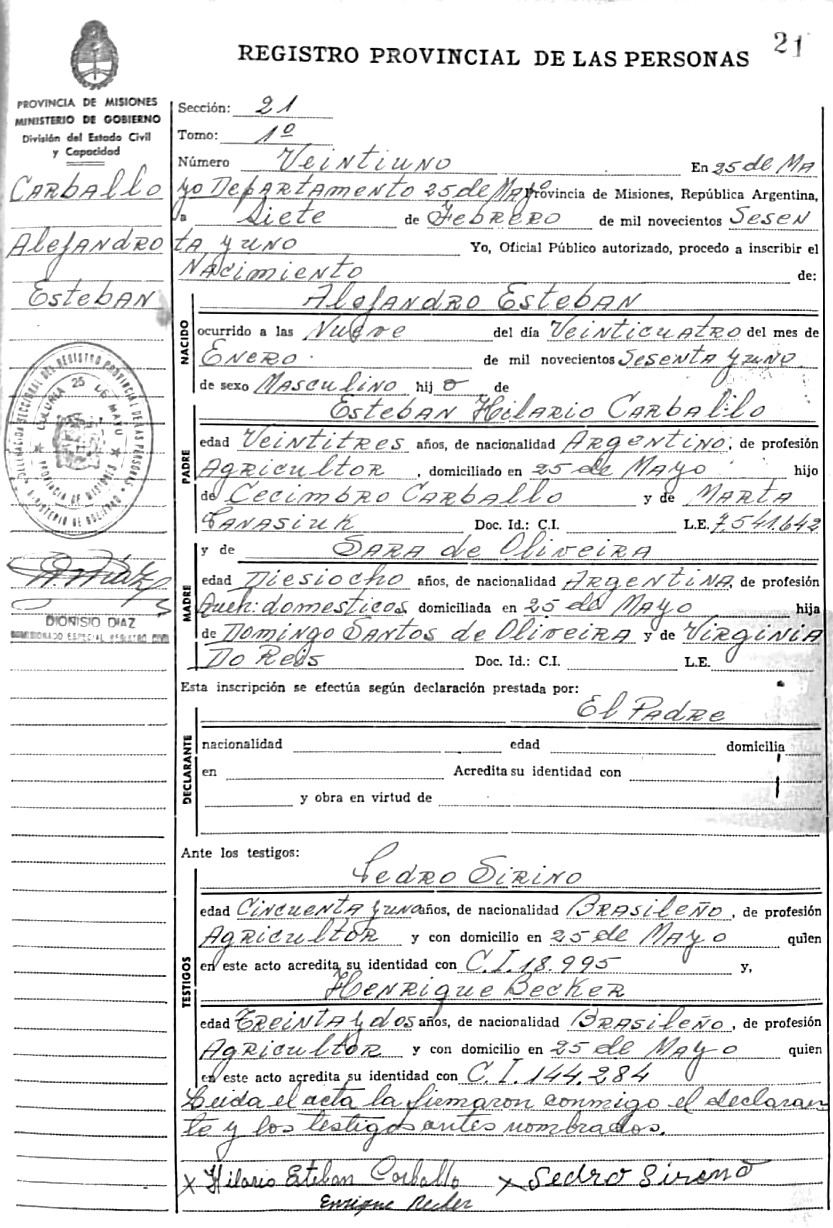 REGISTRO PROVINCIAL DE LAS PERSONAS 21
PROVINCIA DE MISIONES
MINISTERIO DE GOBIERNO
División del Estado Civil
y Capacidad
CARBALLO
Alejandro
Esteban
DELEGACION SECCIONAL DEL REGISTRO PROVINCIAL DE LAS PERSONAS
COLONIA 25 DE MAYO
PROVINCIA DE MISIONES
MINISTERIO DE GOBIERNO
DIONISIO DIAZ
COMISIONADO ESPECIAL REGISTRO CIVIL
Sección: 21
Tomo: 1º
Número Veintiuno En 25 de Ma
yo Departamento 25 de Mayo Provincia de Misiones, República Argentina,
a Siete de Febrero de mil novecientos Sesen
ta y uno Yo, Oficial Público autorizado, procedo a inscribir el
Nacimiento de:
NACIDO
Alejandro Esteban
ocurrido a las Nueve del día Veinticuatro del mes de
Enero. de mil novecientos Sesenta y uno
de sexo Masculino hij o de
PADRE
Esteban Hilario Carballo
edad Veintitres años, de nacionalidad Argentino, de profesión
Agricultor, domiciliado en 25 de Mayo hijo
de Cecimbro Carballo y de Marta
Panasiuk Doc. Id.: C.I. L.E. 7.541.642
MADRE
y de Sara de Oliveira
edad Diesiocho años, de nacionalidad Argentina, de profesión
Queh: domesticos domiciliada en 25 de Mayo hija
de Domingo Santos de Oliveira y de Virginia
Do Reis Doc. Id.: C.I. L.E.
Esta inscripción se efectúa según declaración prestada por:
El Padre
DECLARANTE
nacionalidad edad domicilia
en Acredita su identidad con
y obra en virtud de
Ante los testigos:
TESTIGOS
Pedro Sirino
edad Cincuenta y uno años, de nacionalidad Brasileño, de profesión
Agricultor y con domicilio en 25 de Mayo quien
en este acto acredita su identidad con C.I. 18.995 y,
Henrique Becker
edad Treinta y dos años, de nacionalidad Brasileño, de profesión
Agricultor y con domicilio en 25 de Mayo quien
en este acto acredita su identidad con C.I. 144.284
Leida el acta la firmaron conmigo el declaran
te y los testigos antes nombrados.
x Hilario Esteban Carballo x Pedro Sireno
Enrique Becker